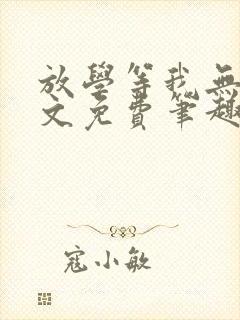 放學等我無
文免費筆趣
寇小敏